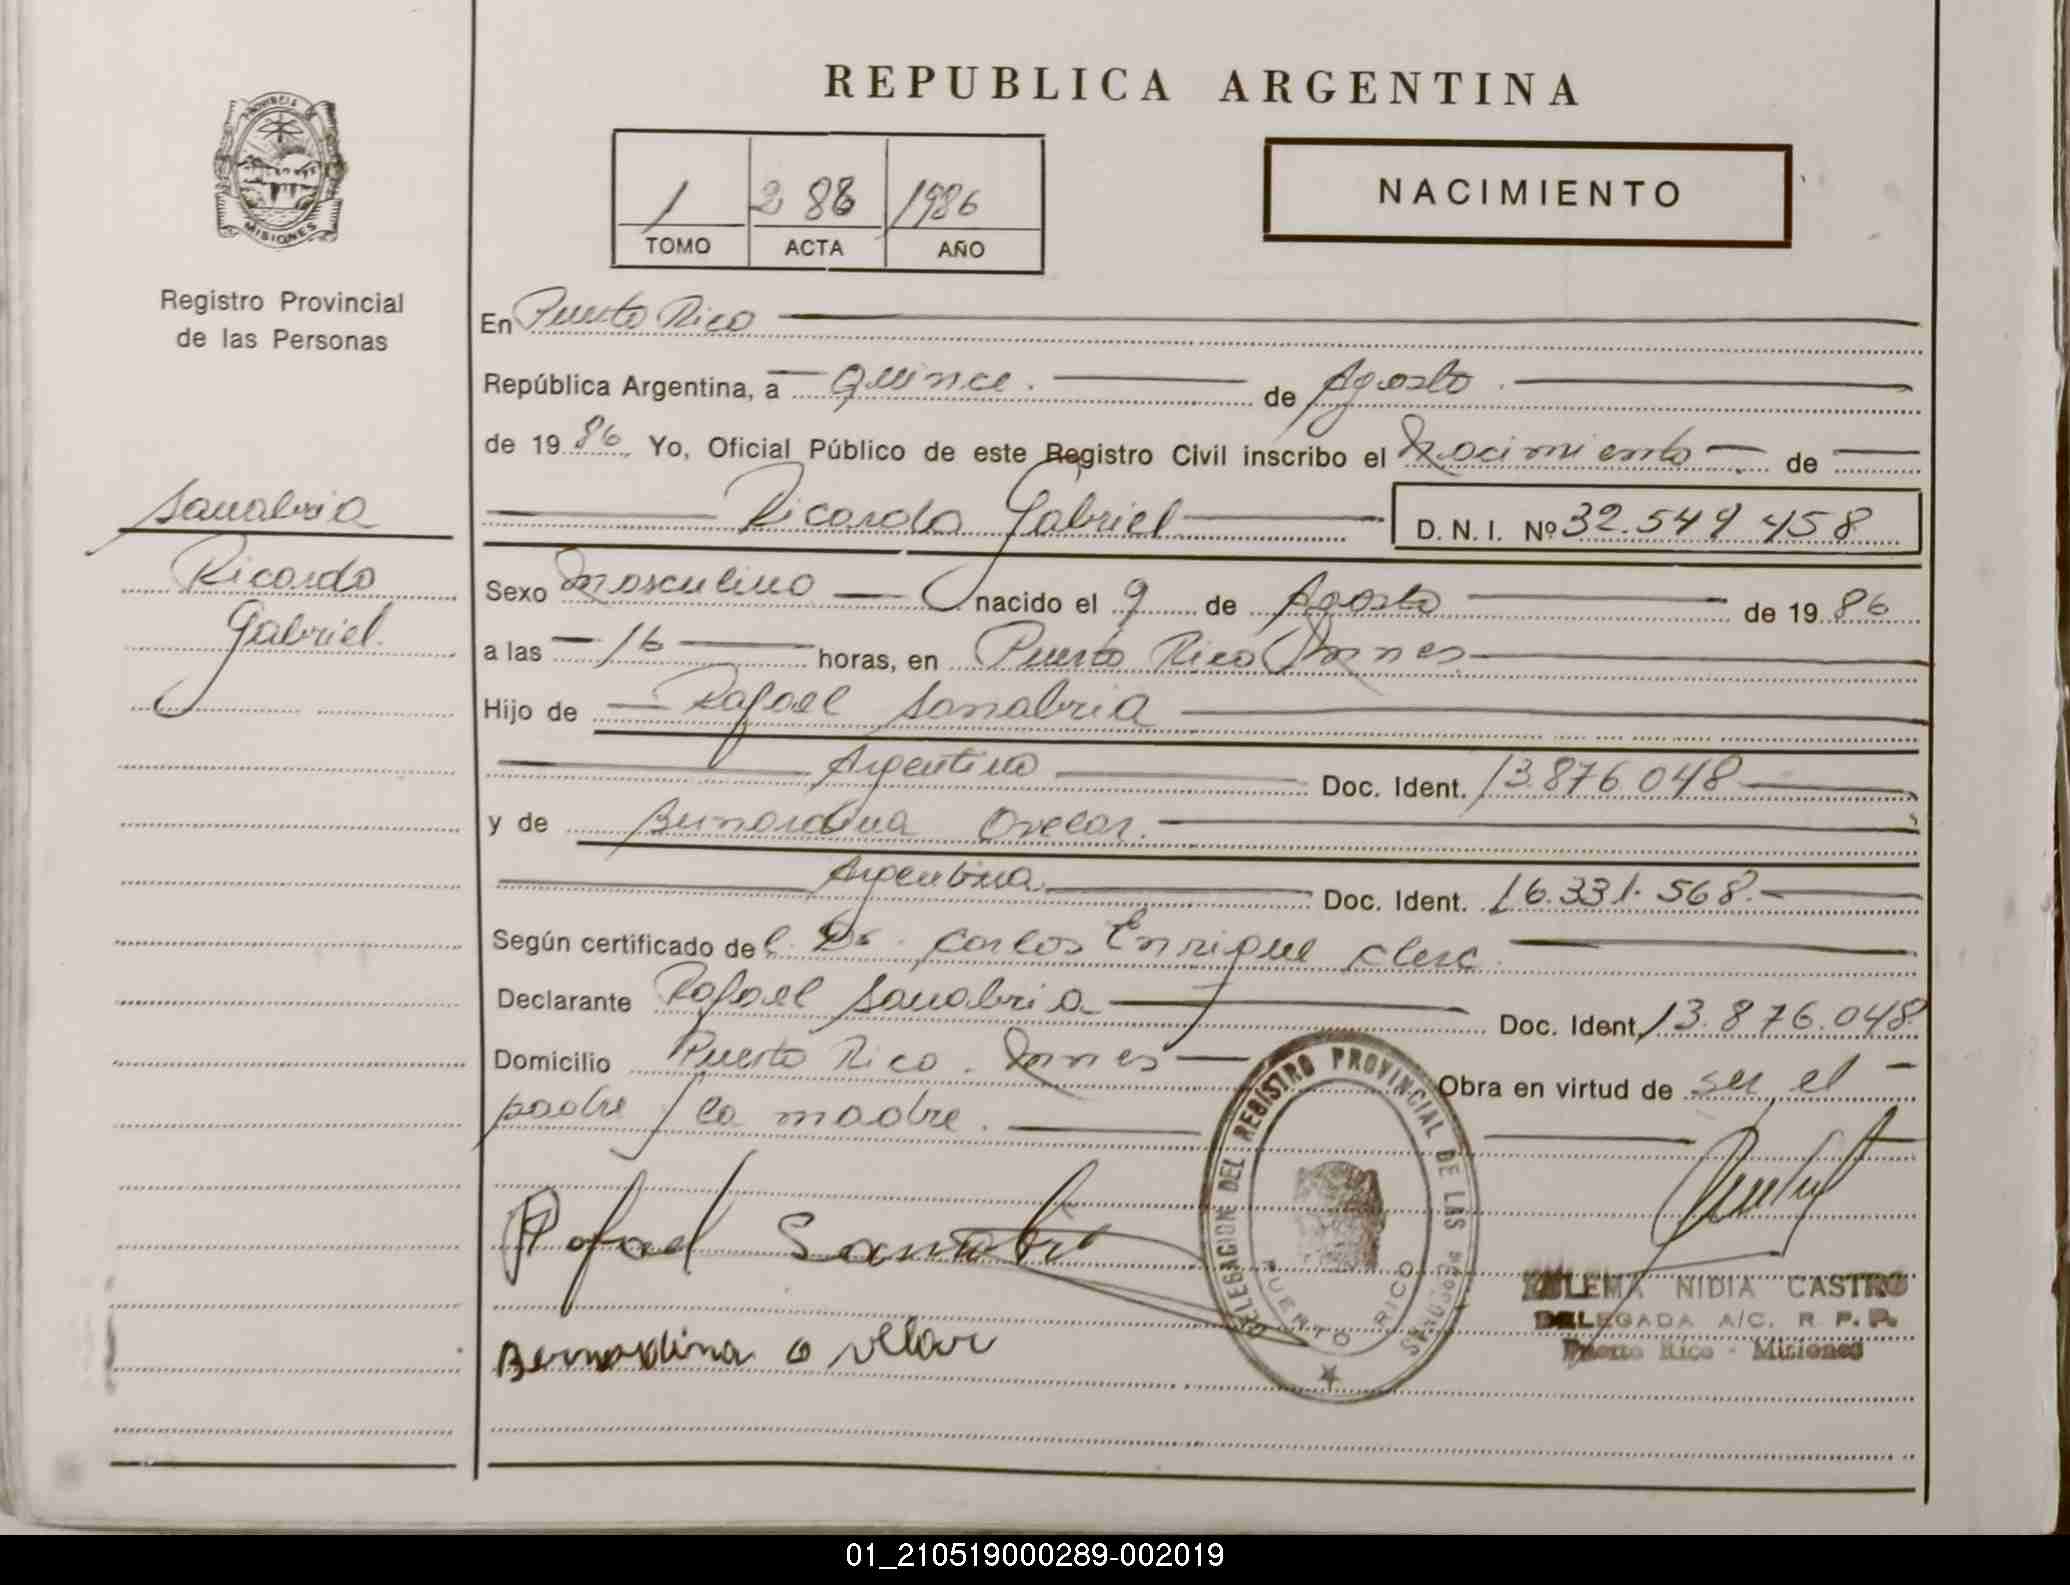 REPUBLICA ARGENTINA
PROVINCIA DE
MISIONES
Registro Provincial
de las Personas
1 286 1986
TOMO ACTA AÑO
NACIMIENTO
Sanabria
Ricardo
Gabriel
En Puerto Rico
República Argentina, a quince. de Agosto.
de 1986 Yo, Oficial Público de este Registro Civil inscribo el Nacimiento de
Ricardo Gabriel D. N. I. Nº 32.549.458
Sexo Masculino nacido el 9 de Agosto de 1986
a las 16 horas, en Puerto Rico Mnes.
Hijo de Rafael Sanabria
Argentino Doc. Ident. 13.876.048
y de Bernardina
Argentina. Doc. Ident. 16.331.568.
Según certificado del Dr. Carlos Enrique Clerc
Declarante Rafael Sanabria Doc. Ident. 13.876.048
Domicilio Puerto Rico. Mnes Obra en virtud de ser el
padre y la madre.
Rafael Sanabria
Bernardina
DELEGACION DEL REGISTRO PROVINCIAL DE LAS PERSONAS
PUERTO RICO
NIDIA CASTRO
DELEGADA A/C. R. P. P.
Puerto Rico - Misiones
01_210519000289-002019